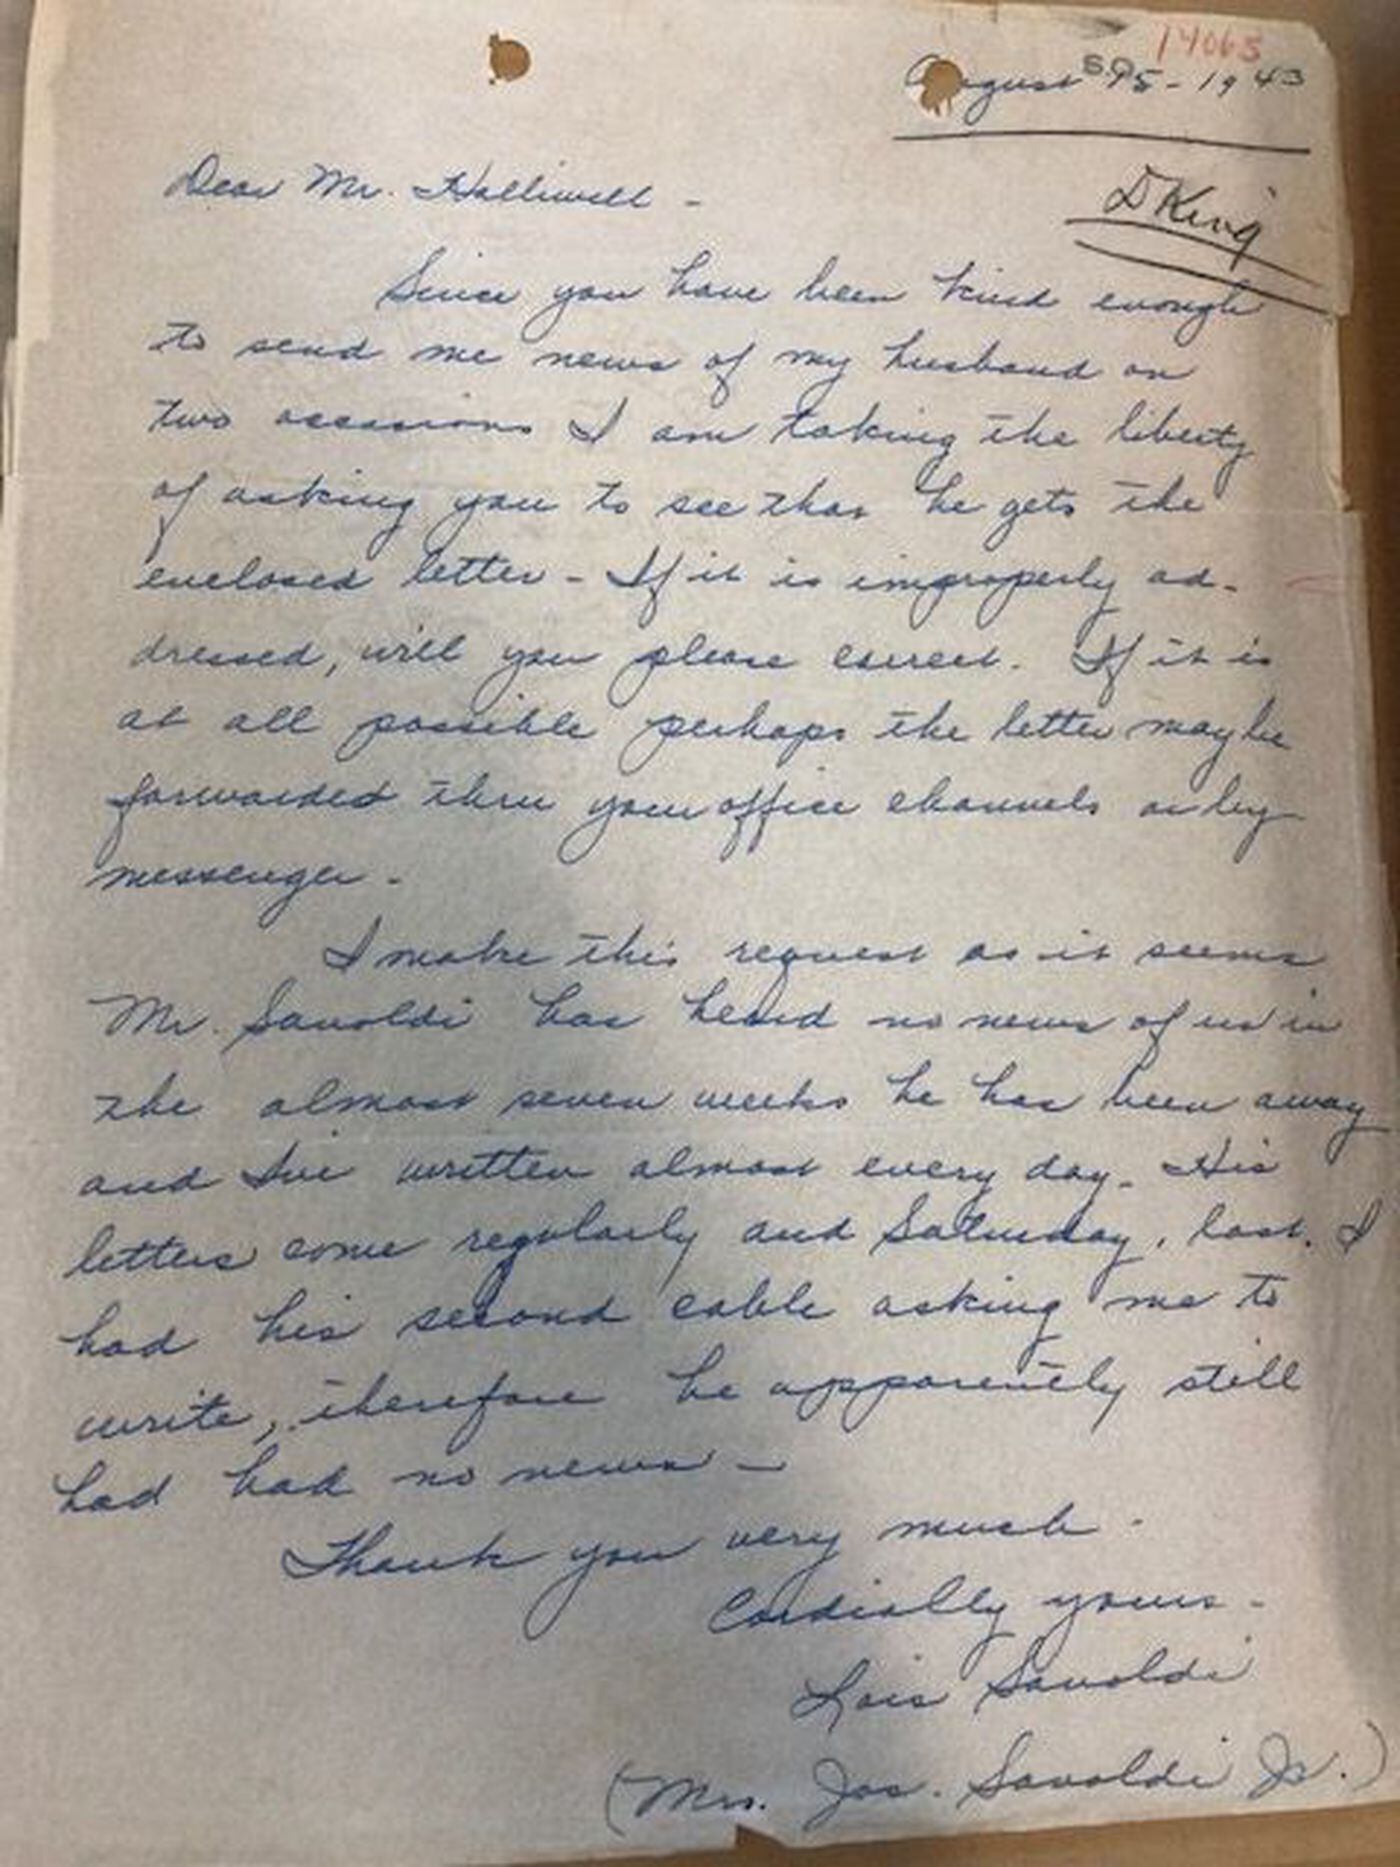 14065
S.O.
August 15 - 1943
D King
Dear Mr. Halliwell -
Since you have been kind enough
to send me news of my husband on
two occasions I am taking the liberty
of asking you to see that he gets the
enclosed letter - If it is improperly ad-
dressed, will you please correct. If it is
at all possible perhaps the letter may be
forwarded thru your office channels or by
messenger -
I make this request as it seems
Mr. Savoldi has heard no news of us in
the almost seven weeks he has been away
and I've written almost every day. His
letters come regularly and Saturday, last, I
had his second cable asking me to
write, therefore he apparently still
had had no news -
Thank you very much -
Cordially yours -
Lois Savoldi
(Mrs. Jos. Savoldi Jr.)